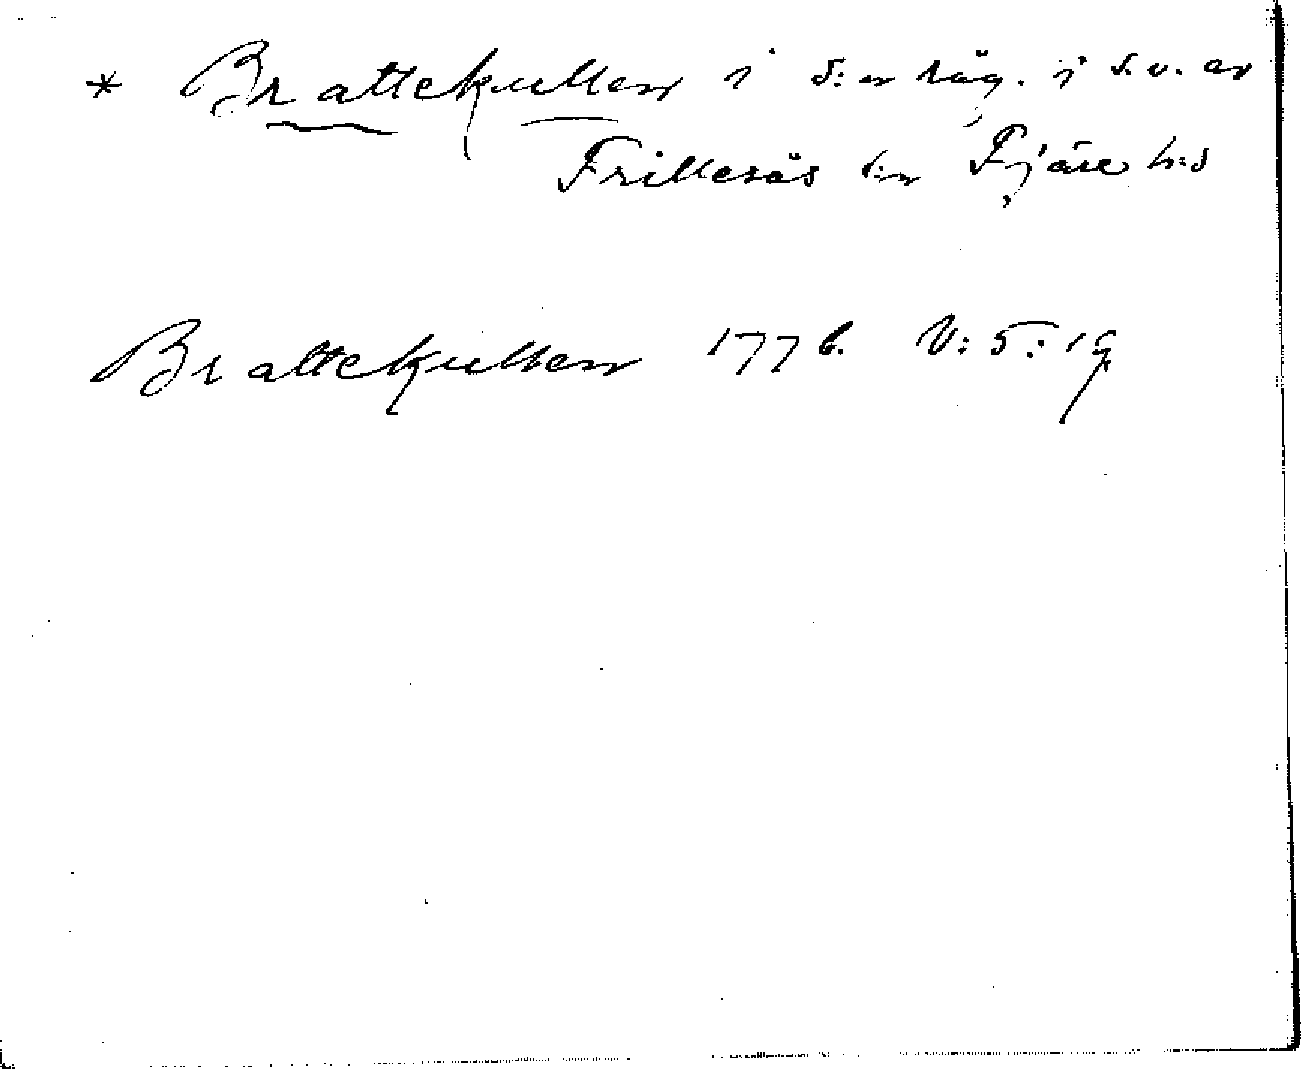 * Brattekullen i S:er häg. i s.v. av
Frillesås s:n Fjäre h:d
Brattekullen 1776. V: 5: 19